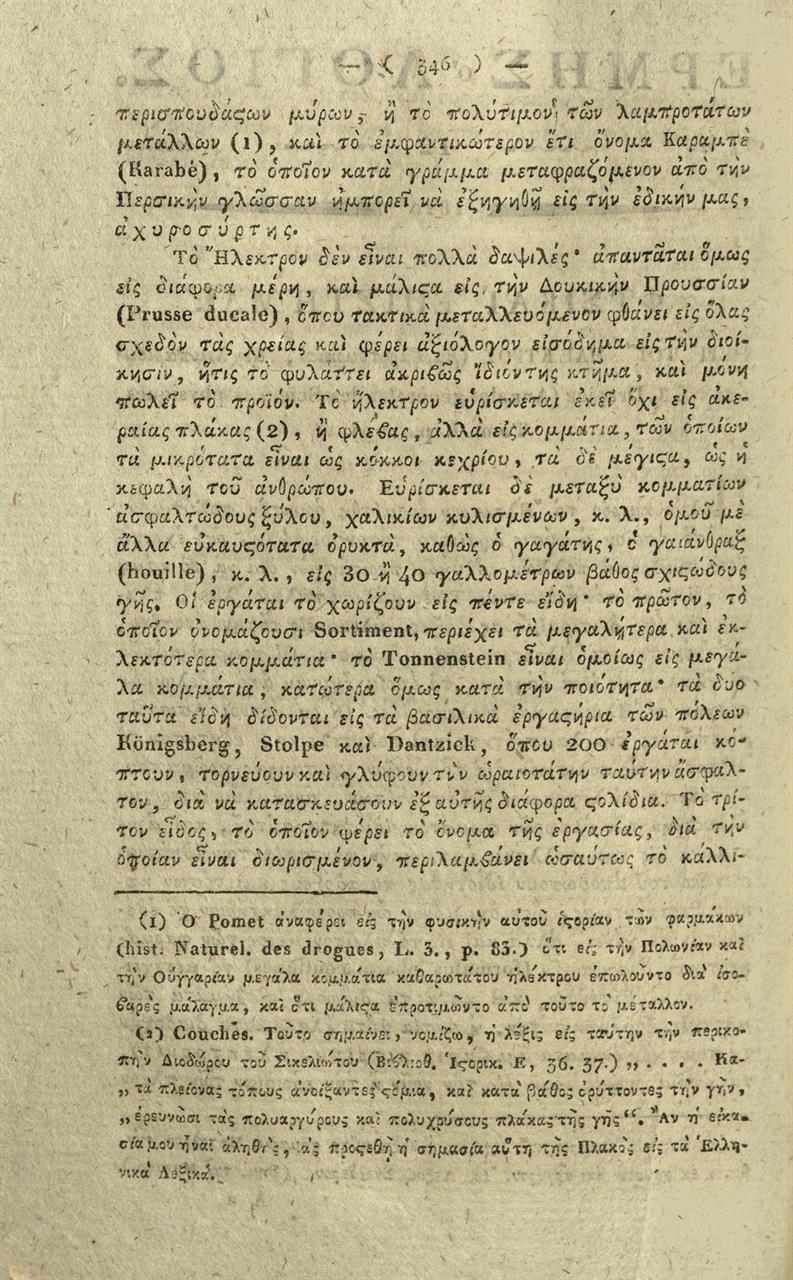 — ( 346 ) —
περισπουδάςων μύρων, ἢ τὸ πολύτιμον τῶν λαμπροτάτων
μετάλλων (1), καὶ τὸ ἐμφαντικώτερον ἔτι ὄνομα Καραμπὲ
(Karabé), τὸ ὁποῖον κατὰ γράμμα μεταφραζόμενον ἀπὸ τὴν
Περσικὴν γλῶσσαν ἠμπορεῖ νὰ ἐξηγηθῇ εἰς τὴν ἐδικήν μας,
ἀχυροσύρτης.
Τὸ Ἤλεκτρον δὲν εἶναι πολλὰ δαψιλές· ἀπαντᾶται ὅμως
εἰς διάφορα μέρη, καὶ μάλιςα εἰς τὴν Δουκικὴν Προυσσίαν
(Prusse ducale), ὅπου τακτικὰ μεταλλευόμενον φθάνει εἰς ὅλας
σχεδὸν τὰς χρείας καὶ φέρει ἀξιόλογον εἰσόδημα εἰς τὴν διοί-
κησιν, ἥτις τὸ φυλάττει ἀκριβῶς ἴδιόν της κτῆμα, καὶ μόνη
πωλεῖ τὸ προϊόν. Τὸ ἤλεκτρον εὑρίσκεται ἐκεῖ ὄχι εἰς ἀκε-
ραίας πλάκας (2), ἢ φλέβας, ἀλλὰ εἰς κομμάτια, τῶν ὁποίων
τὰ μικρότατα εἶναι ὡς κόκκοι κεχρίου, τὰ δὲ μέγιςα, ὡς ἡ
κεφαλὴ τοῦ ἀνθρώπου. Εὑρίσκεται δὲ μεταξὺ κομματίων
ἀσφαλτώδους ξύλου, χαλικίων κυλισμένων, κ. λ., ὁμοῦ μὲ
ἄλλα εὐκαυςότατα ὀρυκτά, καθὼς ὁ γαγάτης, ὁ γαιάνθραξ
(houille), κ. λ., εἰς 30 ἢ 40 γαλλομέτρων βάθος σχιςώδους
γῆς. Οἱ ἐργάται τὸ χωρίζουν εἰς πέντε εἴδη· τὸ πρῶτον, τὸ
ὁποῖον ὀνομάζουσι Sortiment, περιέχει τὰ μεγαλήτερα καὶ ἐκ-
λεκτότερα κομμάτια· τὸ Tonnenstein εἶναι ὁμοίως εἰς μεγά-
λα κομμάτια, κατώτερα ὅμως κατὰ τὴν ποιότητα· τὰ δυο
ταῦτα εἴδη δίδονται εἰς τὰ βασιλικὰ ἐργαςήρια τῶν πόλεων
Königsberg, Stolpe καὶ Dantzick, ὅπου 200 ἐργάται κό-
πτουν, τορνεύουν καὶ γλύφουν τὴν ὡραιοτάτην ταύτην ἄσφαλ-
τον, διὰ νὰ κατασκευάσουν ἐξ αὐτῆς διάφορα ςολίδια. Τὸ τρί-
τον εἶδος, τὸ ὁποῖον φέρει τὸ ὄνομα τῆς ἐργασίας, διὰ τὴν
ὁποίαν εἶναι διωρισμένον, περιλαμβάνει ὡσαύτως τὸ κάλλι-
(1) Ὁ Pomet ἀναφέρει εἰς τὴν φυσικὴν αὐτοῦ ἱςορίαν τῶν φαρμάκων
(hist. Naturel. des drogues, L. 3., p. 83.) ὅτι εἰς τὴν Πολωνίαν καὶ
τὴν Οὐγγαρίαν μεγάλα κομμάτια καθαρωτάτου ἠλέκτρου ἐπωλοῦντο διὰ ἰσο-
βαρὲς μάλαγμα, καὶ ὅτι μάλιςα ἐπροτιμῶντο ἀπὸ τοῦτο τὸ μέταλλον.
(2) Couches. Τοῦτο σημαίνει, νομίζω, ἡ λέξις εἰς ταύτην τὴν περικο-
πὴν Διοδώρου τοῦ Σικελιώτου (Βιβλιοθ. Ἱςορικ. Ε, 36. 37.) „ . . . . Κα-
„ τὰ πλείονας τόπους ἀνοίξαντες ςόμια, καὶ κατὰ βάθος ὀρύττοντες τὴν γῆν,
„ ἐρευνῶσι τὰς πολυαργύρους καὶ πολυχρύσους πλάκας τῆς γῆς“. Ἂν ἡ εἰκα-
σία μου ἦναι ἀληθὴς, ἂς προςεθῇ ἡ σημασία αὕτη τῆς Πλακὸς εἰς τὰ Ἑλλη-
νικὰ Λεξικά.